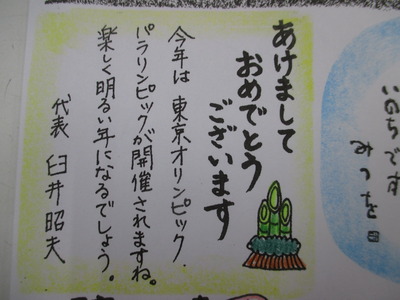 いのちです
みつを
あけまして
おめでとう
ございます
今年は東京オリンピック・
パラリンピックが開催されますね。
楽しく明るい年になるでしょう。
代表 臼井昭夫